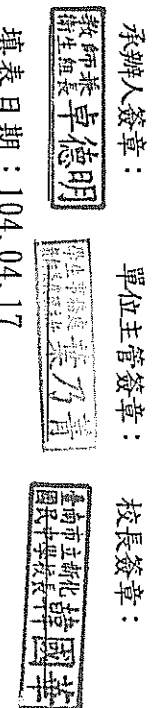 承辦人簽章：
單位主管簽章：
校長簽章：
教師兼
衛生組長
卓德明
臺南市立新化
國民中學校長
填表日期：104.04.17